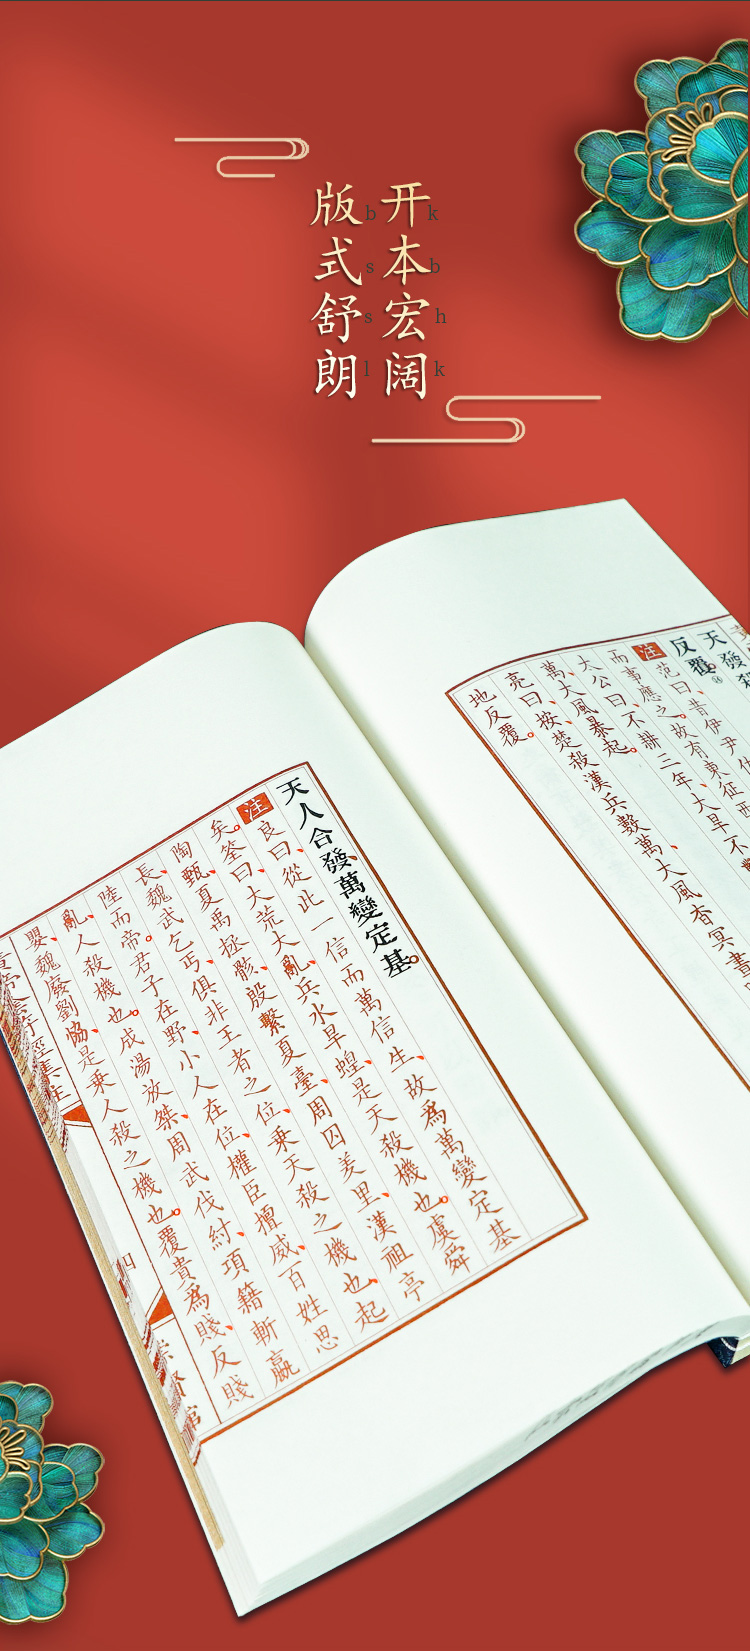 开本宏阔
k b h k
版式舒朗
b s s l
天發
反覆。
注 范曰、昔伊尹
而事應之。故有東征西
太公曰、不耕三年、大旱不
萬、大風暴起。
亮曰、按楚殺漢兵數萬、大風杳冥晝
地反覆。
天人合發萬變定基。
注 良曰、從此一信而萬信生、故為萬變定基
矣。筌曰、大荒大亂、兵水旱蝗、是天殺機也。虞舜
陶甄、夏禹拯骸、殷繫夏臺、周囚羑里、漢祖亭
長、魏武乞丐、俱非王者之位、乘天殺之機也、起
陸而帝。君子在野、小人在位、權臣擅威、百姓思
亂、人殺機也。成湯放桀、周武伐紂、項籍斬嬴
嬰、魏廢劉協、是乘人殺之機也。覆貴為賤、反賤
四